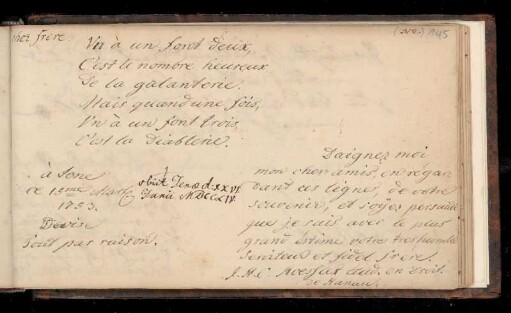 (No.) 145
mes frère
Un à un font deux,
C'est le nombre heureux
De la galanterie.
Mais quand une fois,
Un à un font trois,
C'est la Diablerie.
à Jene
ce 12eme Mars
1753.
Devise
tout par raison.
obiit Jenae d. XXVI
Junii MDCCLIV.
Daignez moi
mon cher amis, en regar
dant ces lignes, de votre
souvenir, et soyez persuadé
que je suis avec le plus
grand estime votre tres humble
serviteur et fidel frere.
J. H. C. stud. en droit.
de Hanau.